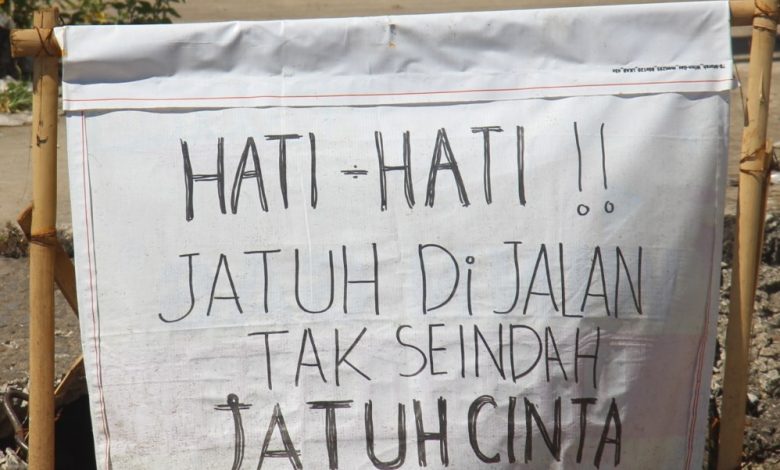 HATI-HATI !!
JATUH Di JALAN
TAK SEINDAH
JATUH CINTA